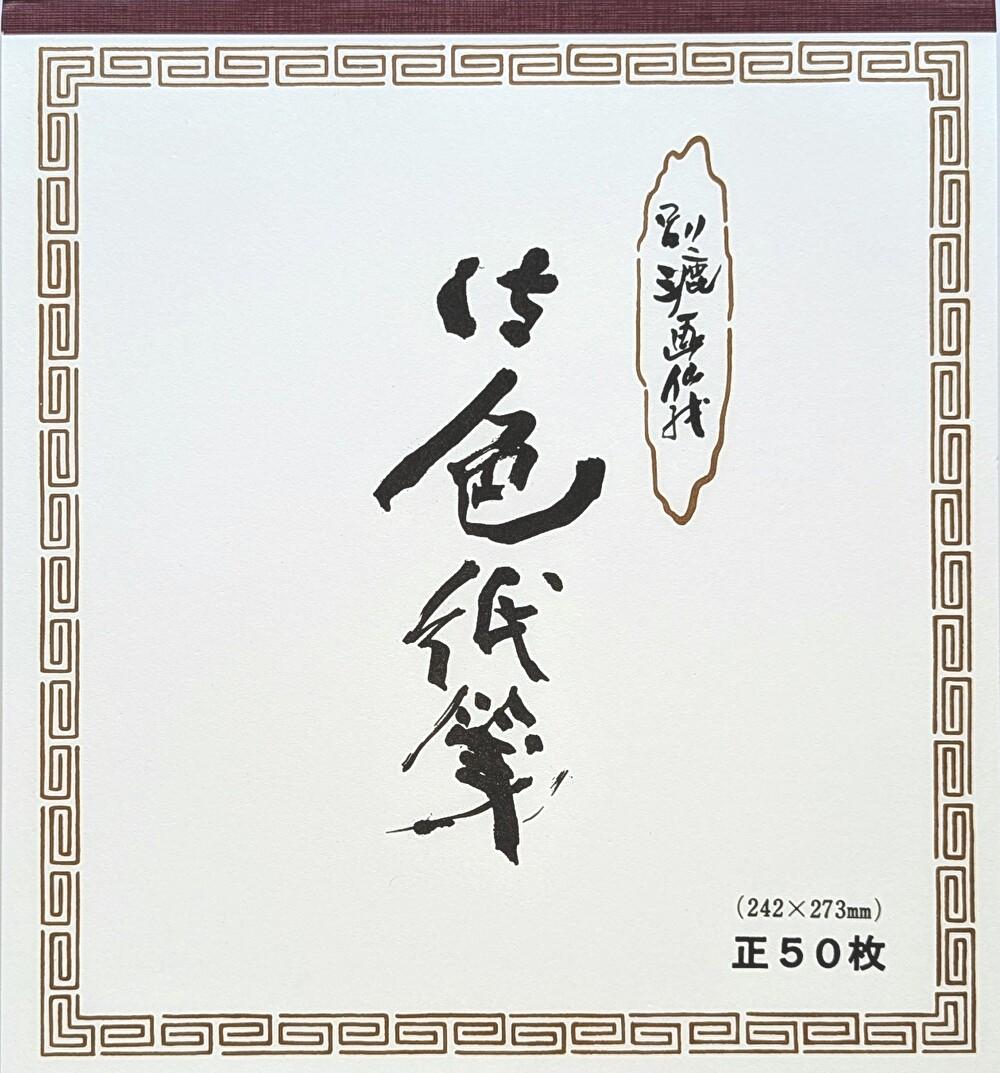 別漉画仙紙
色紙
(242×273mm)
正50枚